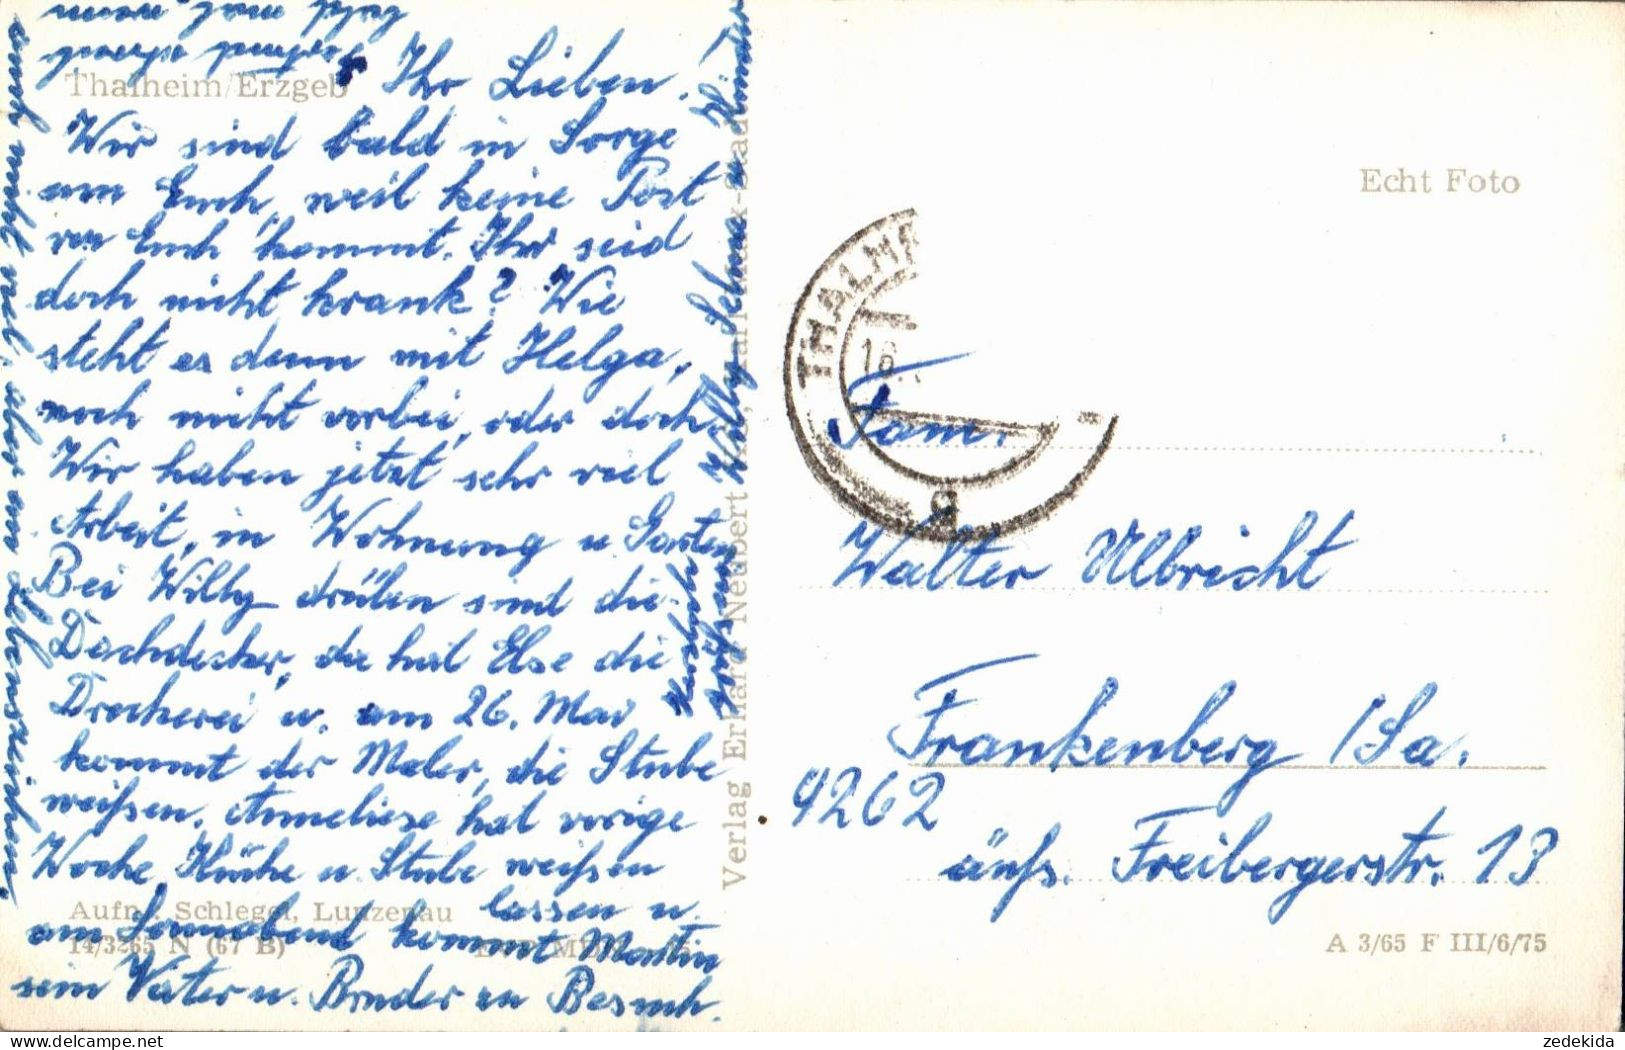 Thalheim/Erzgeb
Ihr Lieben!
Wir sind bald in Sorge
um Euch, weil keine Post
von Euch kommt. Ihr seid
doch nicht krank? Wie
steht es denn mit Helga,
noch nicht vorbei, oder doch.
Wir haben jetzt sehr viel
Arbeit, in Wohnung u. Garten
Bei Willy drüben sind die
Dachdecker, da hat Else die
Dreckerei u. am 26. Mai
kommt der Maler, die Stube
weißen. Anneliese hat vorige
Woche Küche u. Stube weißen
lassen u.
am Sonnabend kommt Martin
sein Vater u. Bruder zu Besuch.
auch nicht viel, aber ein Lebenszeichen.
Herzliche Grüße
Willy Selma u Kinder
Aufn.: Schlegel, Lunzenau
14/3265 N (67 B)
Verlag Erhard Neubert, Karl-Marx-Stadt
Echt Foto
THALM
16.
a
Fam.
Walter Ulbricht
Frankenberg /Sa.
9262
äuß. Freibergerstr. 13
A 3/65 F III/6/75
zedekida